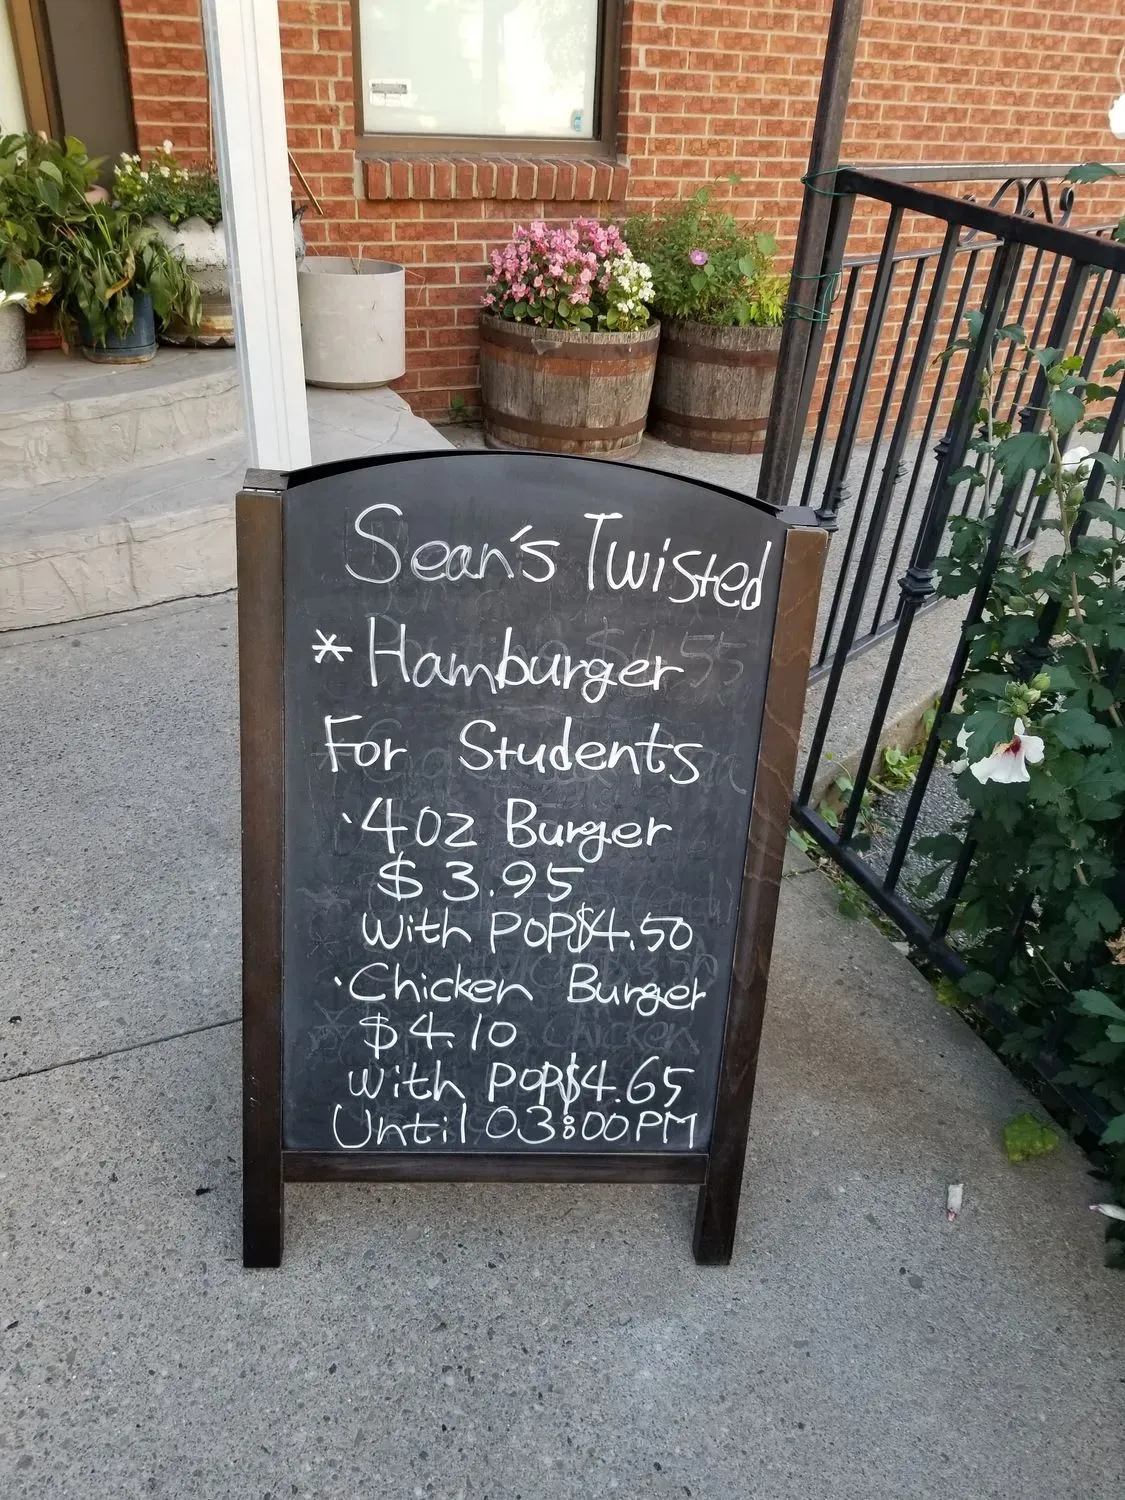 Sean's Twisted
* Hamburger
For Students
·4oz Burger
$3.95
with POP$4.50
·Chicken Burger
$4.10
with POP$4.65
Until 03:00PM